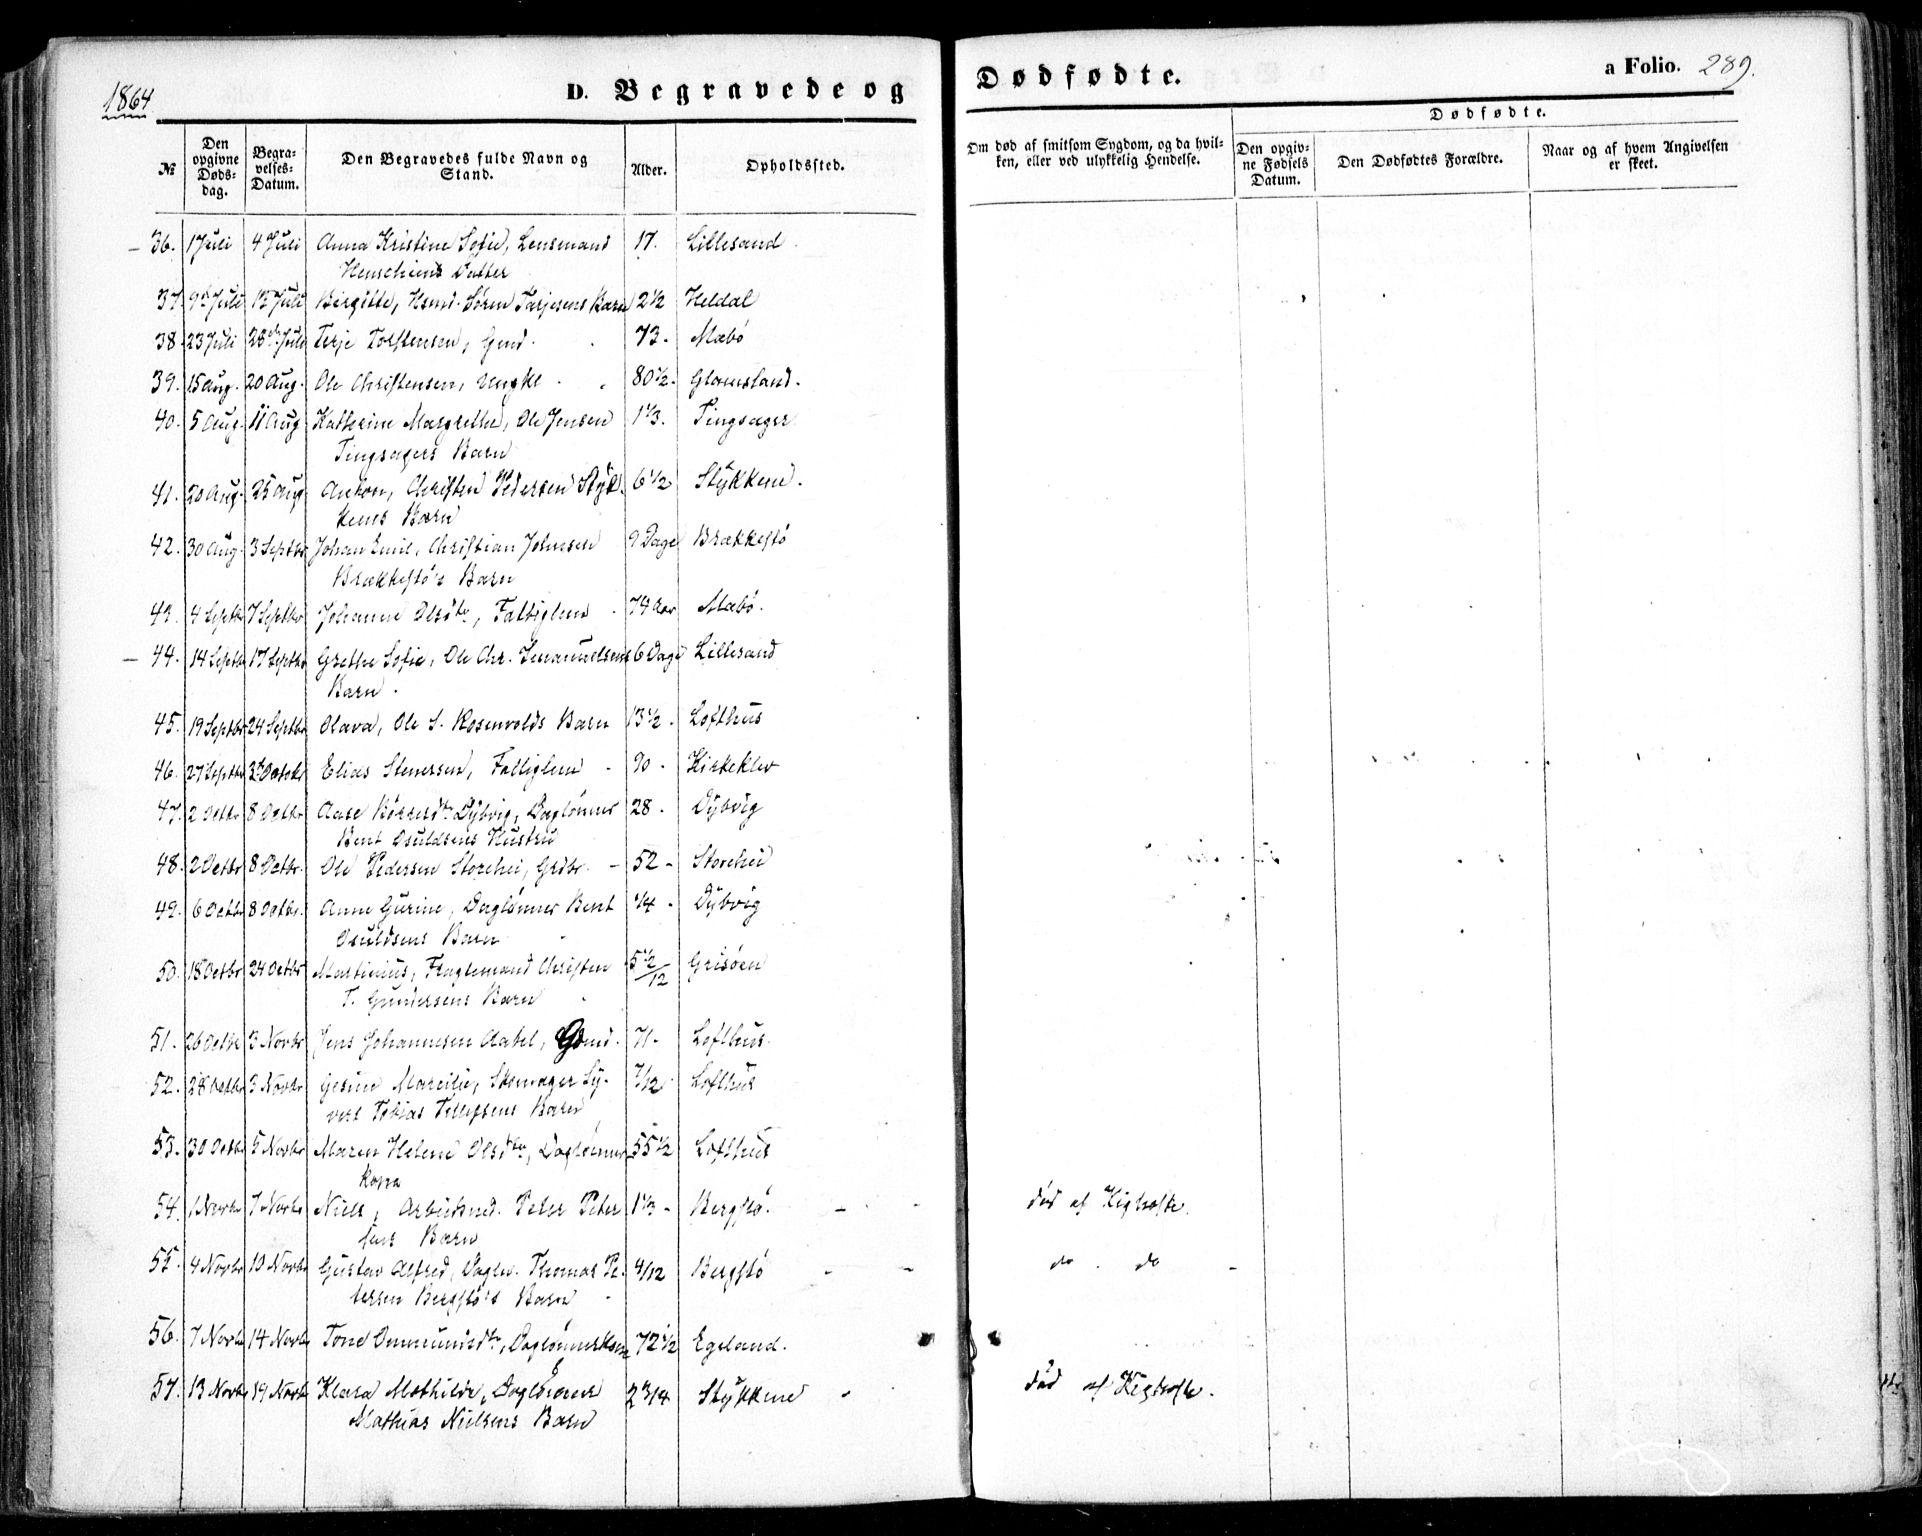 1864
D. Begravede og Dødfødte.
a Folio. 289.
№
Den opgivne Døds-dag.
Begra-velses-Datum.
Den Begravedes fulde Navn og Stand.
Alder.
Opholdssted.
Om død af smitsom Sygdom, og da hvil-
ken, eller ved ulykkelig Hendelse.
Dødfødte.
Den opgiv-ne Fødsels Datum.
Den Dødfødtes Forældre.
Naar og af hvem Angivelsen er skeet.
36. 1 Juli 4 Juli Anna Kristine Sofie, Lensmand 17. Lillesand
Henschiens Datter
37. 9 Juli Juli Birgitte, Hsmd. Søren Tarjesens Barn 2½ Heldal
38. 23 Juli 28 Juli Terje Torstensen, Gmd. 73. Mæbø
39. 15 Aug. 20 Aug. Ole Christensen, Ungkl. 80½. Glamsland.
40. 5 Aug. 11 Aug Kathrine Margrethe, Ole Jensen 1⅓. Tingsager
Tingsagers Barn
41. 20 Aug. 25 Aug Anton, Christen Pedersen Styk- 6½ Stykkene.
kenes Barn
42. 30 Aug. 3 Septbr Johan Emil, Christian Johnsen 9 Dage Brækkestø
Brækkestø's Barn
43. 4 Septbr 7 Septbr Johanne Olsdtr, Fattiglem 74 Aar Mæbø.
44. 14 Septbr 17 Septbr Grethe Sofie, Ole Chr. Imanuelsens 6 Dage Lillesand
Barn.
45. 19 Septbr 24 Septbr Olava, Ole S. Rosenvolds Barn 13½. Lofthus
46. 27 Septbr 3 Octobr Elias Stenersen, Fattiglem 90. Kirkeklev
47. 2 Octbr 8 Octbr Aase Børresdtr Dybvig, Daglønner 28. Dybvig
Bent Osuldsens Hustru
48. 2 Octbr 8 Octbr. Ole Pedersen Storehei, Grdbr. 52 Storehei
49. 6 Octbr 8 Octbr. Anne Gurine, Daglønner Bent ¼. Dybvig
Osuldsens Barn
50. 18 Octbr 24 Octbr Martinius, Fragtemand Christen 5½/12 Grisøen
T. Gundersens Barn
51. 26 Octbr 3 Novbr Jens Johannesen Aabel, Gdmd. 71. Lofthus.
52. 28 Octbr 3 Novbr Gesine Marcilie, Skomager Sy- 7/12. Lofthus
vert Tobias Tellefsens Barn
53. 30 Octbr 5 Novbr Maren Helene Olsdtr, Daglønner 55½ Lofthus
kone
54. 1 Novbr 7 Novbr Niels, Arbeidsmd. Peter Peter 1⅓ Bergstø. død af Kighoste.
sens Barn
55. 4 Novbr 10 Novbr Gustav Alfred, Dagln. Thomas Pe- 4/12 Bergstø do. do
tersen Bergstø's Barn
56. 7 Novbr 14 Novbr Tone Ommundsdtr, Daglønnerkone 72½ Egeland.
57. 13 Novbr 19 Novbr Klara Mathilde, Daglønner 2 3/4 Stykkene død af Kighoste.
Mathias Nielsens Barn